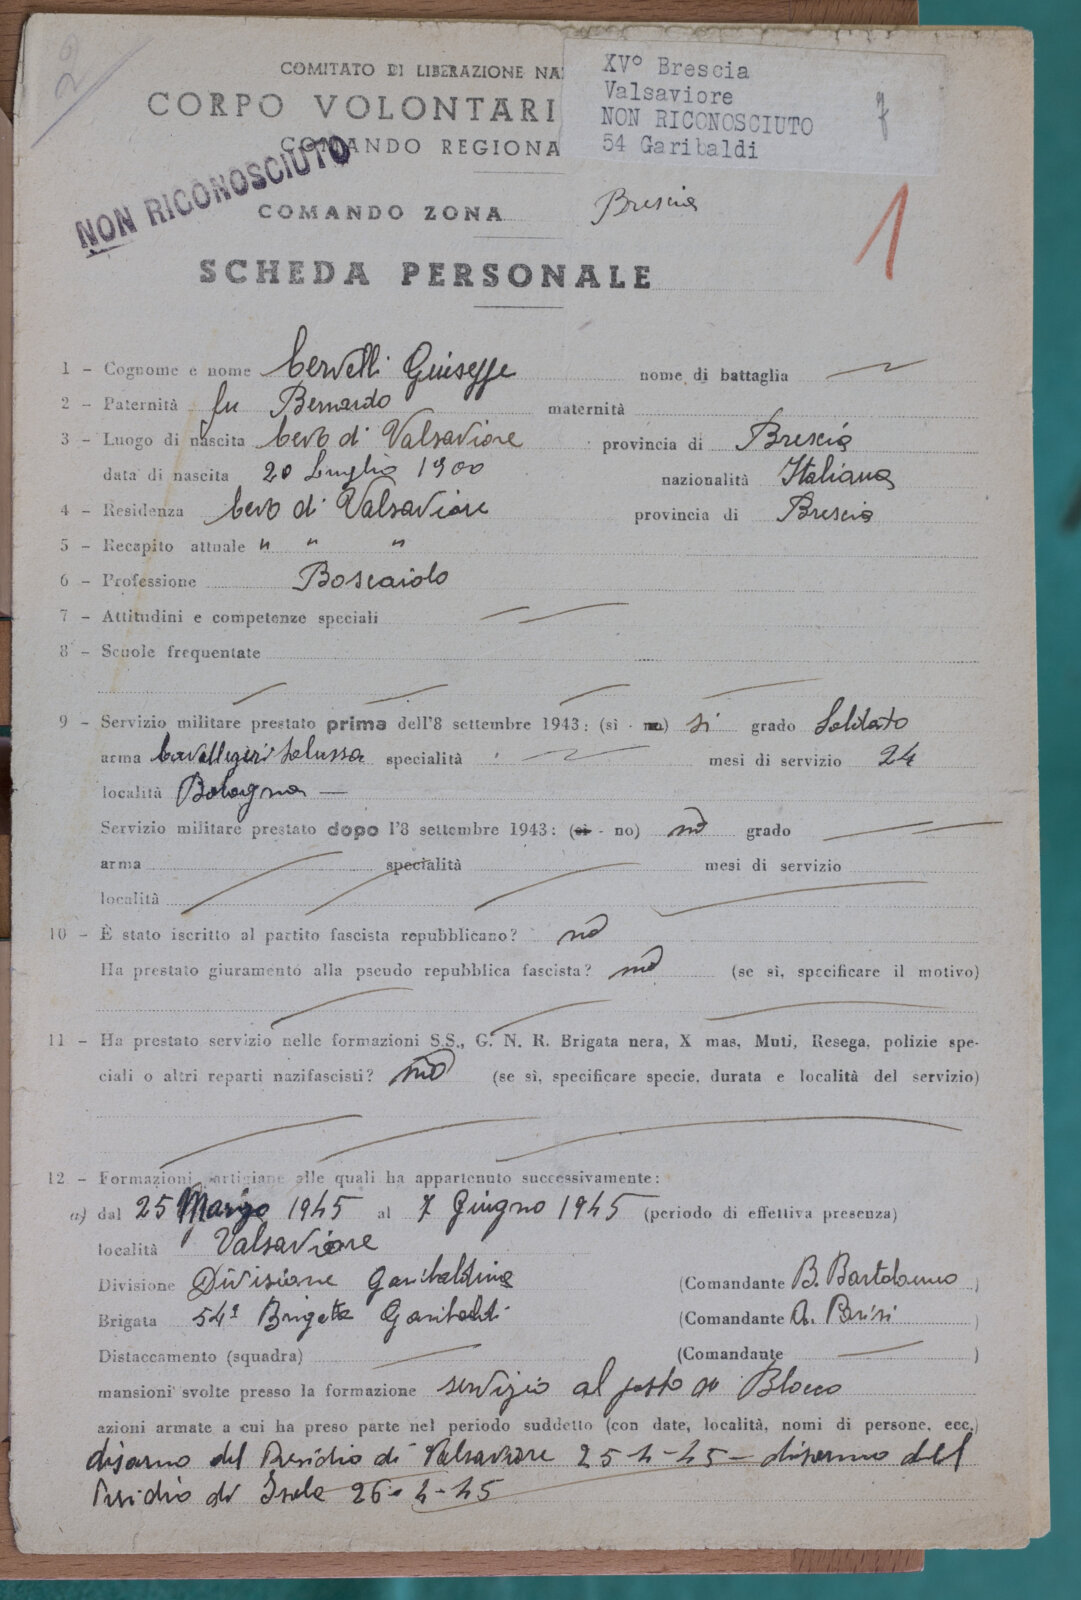 2
COMITATO DI LIBERAZIONE NA
CORPO VOLONTARI
COMANDO REGIONA
XV° Brescia
Valsaviore
NON RICONOSCIUTO
54 Garibaldi
7
NON RICONOSCIUTO
1
COMANDO ZONA Brescia
SCHEDA PERSONALE
1 - Cognome e nome Cervelli Giuseppe nome di battaglia
2 - Paternità fu Bernardo maternità
3 - Luogo di nascita Cevo di Valsaviore provincia di Brescia
data di nascita 20 Luglio 1900 nazionalità Italiana
4 - Residenza Cevo di Valsaviore provincia di Brescia
5 - Recapito attuale " " "
6 - Professione Boscaiolo
7 - Attitudini e competenze speciali
8 - Scuole frequentate
9 - Servizio militare prestato prima dell'8 settembre 1943: (sì - no) si grado Soldato
arma Cavalleggeri Saluzzo specialità mesi di servizio 24
località Bologna —
Servizio militare prestato dopo l'8 settembre 1943: (sì - no) nò grado
arma specialità mesi di servizio
località
10 - È stato iscritto al partito fascista repubblicano? nò
Ha prestato giuramento alla pseudo repubblica fascista? nò (se sì, specificare il motivo)
11 - Ha prestato servizio nelle formazioni S.S., G. N. R. Brigata nera, X mas, Muti, Resega, polizie spe-
ciali o altri reparti nazifascisti? nò (se sì, specificare specie, durata e località del servizio)
12 - Formazioni partigiane alle quali ha appartenuto successivamente:
a) dal 25 Marzo 1945 al 7 Giugno 1945 (periodo di effettiva presenza)
località Valsaviore
Divisione Divisione Garibaldina (Comandante B. Bartolomeo )
Brigata 54ª Brigata Garibaldi (Comandante A. Parisi )
Distaccamento (squadra) (Comandante )
mansioni svolte presso la formazione servizio al posto di Blocco
azioni armate a cui ha preso parte nel periodo suddetto (con date, località, nomi di persone, ecc.)
disarmo del Presidio di Valsaviore 25-4-45 — disarmo del
Presidio di Isola 26-4-45